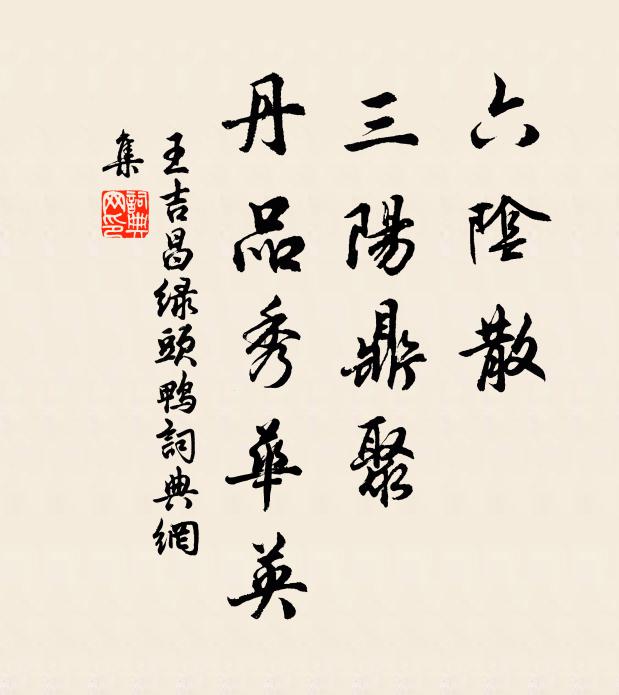 六陰散
三陽鼎聚
丹品秀華英
王吉昌緑頭鴨詞典網
集
詞典
网印